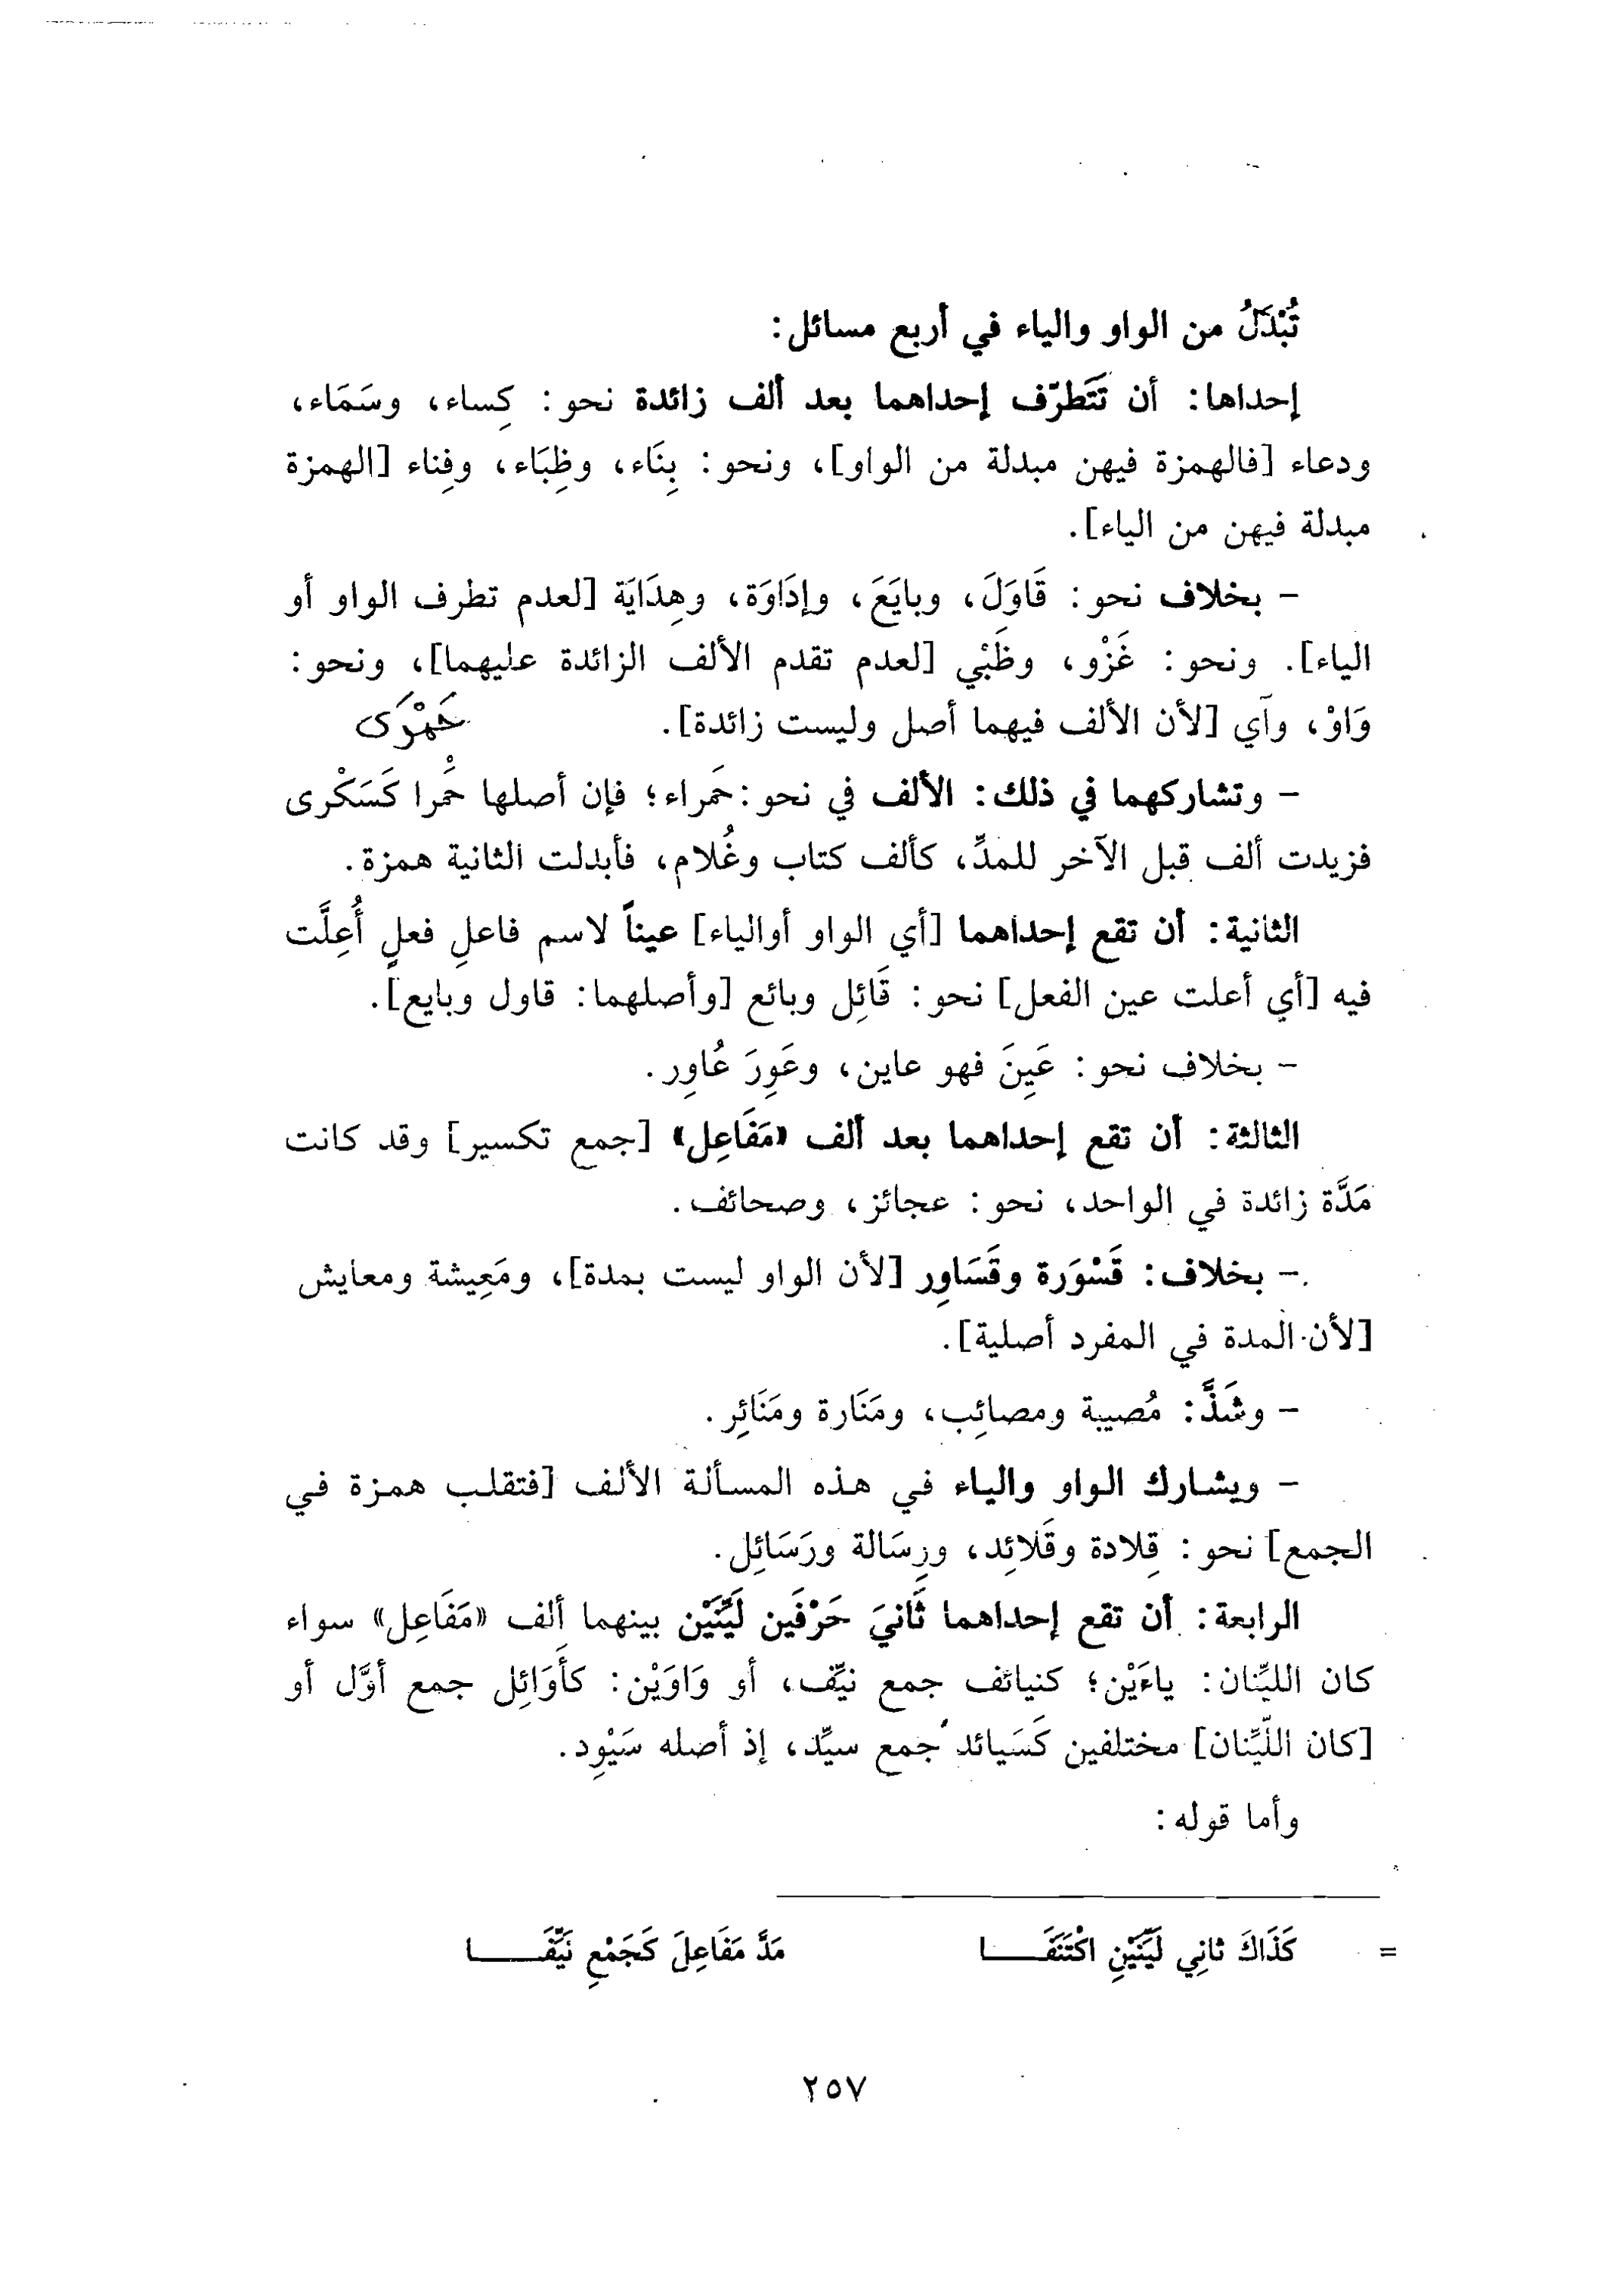 تُبْدَلُ من الواو والياء في أربع مسائل:
إحداها: أن تَتَطرّف إحداهما بعد ألف زائدة نحو: كِساء، وسَمَاء،
ودعاء [فالهمزة فيهن مبدلة من الواو]، ونحو: بِنَاء، وظِبَاء، وفِناء [الهمزة
مبدلة فيهن من الياء].
- بخلاف نحو: قَاوَلَ، وبايَعَ، وإدَاوَة، وهِدَايَة [لعدم تطرف الواو أو
الياء]. ونحو: غَزْو، وظَبْي [لعدم تقدم الألف الزائدة عليهما]، ونحو:
وَاوْ، وآي [لأن الألف فيهما أصل وليست زائدة].
- وتشاركهما في ذلك: الألف في نحو: حَمراء؛ فإن أصلها حَمْرا كَسَكْرى
فزيدت ألف قبل الآخر للمدِّ، كألف كتاب وغُلام، فأبدلت الثانية همزة.
الثانية: أن تقع إحداهما [أي الواو أوالياء] عيناً لاسم فاعلِ فعلٍ أُعِلَّت
فيه [أي أعلت عين الفعل] نحو: قَائِل وبائع [وأصلهما: قاول وبايع].
- بخلاف نحو: عَيِنَ فهو عاين، وعَوِرَ عُاوِر.
الثالثة: أن تقع إحداهما بعد ألف «مَفَاعِل» [جمع تكسير] وقد كانت
مَدَّة زائدة في الواحد، نحو: عجائز، وصحائف.
- بخلاف: قَسْوَرة وقَسَاوِر [لأن الواو ليست بمدة]، ومَعِيشة ومعايش
[لأن المدة في المفرد أصلية].
- وشَذَّ: مُصيبة ومصائِب، ومَنَارة ومَنَائِر.
- ويشارك الواو والياء في هذه المسألة الألف [فتقلب همزة في
الجمع] نحو: قِلادة وقَلائِد، ورِسَالة ورَسَائِل.
الرابعة: أن تقع إحداهما ثَانيَ حَرْفَين لَيِّنَيْن بينهما ألف «مَفَاعِل» سواء
كان الليِّنان: ياءَيْن؛ كنيائف جمع نيِّف، أو وَاوَيْن: كأَوَائِل جمع أوَّل أو
[كان اللَّيِّنان] مختلفين كَسَيائد جمع سيِّد، إذ أصله سَيْوِد.
وأما قوله:
= كَذَاكَ ثانِي لَيِّنَيْنِ اكْتَنَفَـــا مَدَّ مَفَاعِلَ كَجَمْعِ نَيِّفَـــا
٢٥٧